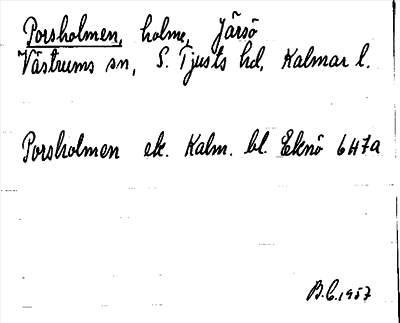 Porsholmen, holme, Järsö
Västrums sn, S. Tjusts hd, Kalmar l.
Porsholmen ek. Kalm. bl. Eknö 6H7a
B.C. 1957